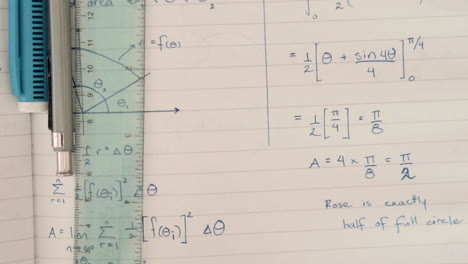 area
r = f(θ)
θ₂
θ₁
1/2 r² Δθ
n Σ r=1 1/2 [f(θi)]² Δθ
A = lim n→∞ n Σ r=1 1/2 [f(θi)]² Δθ
= 1/2 [θ + sin4θ/4] π/4 0
= 1/2 [π/4] = π/8
A = 4 × π/8 = π/2
Rose is exactly
half of full circle